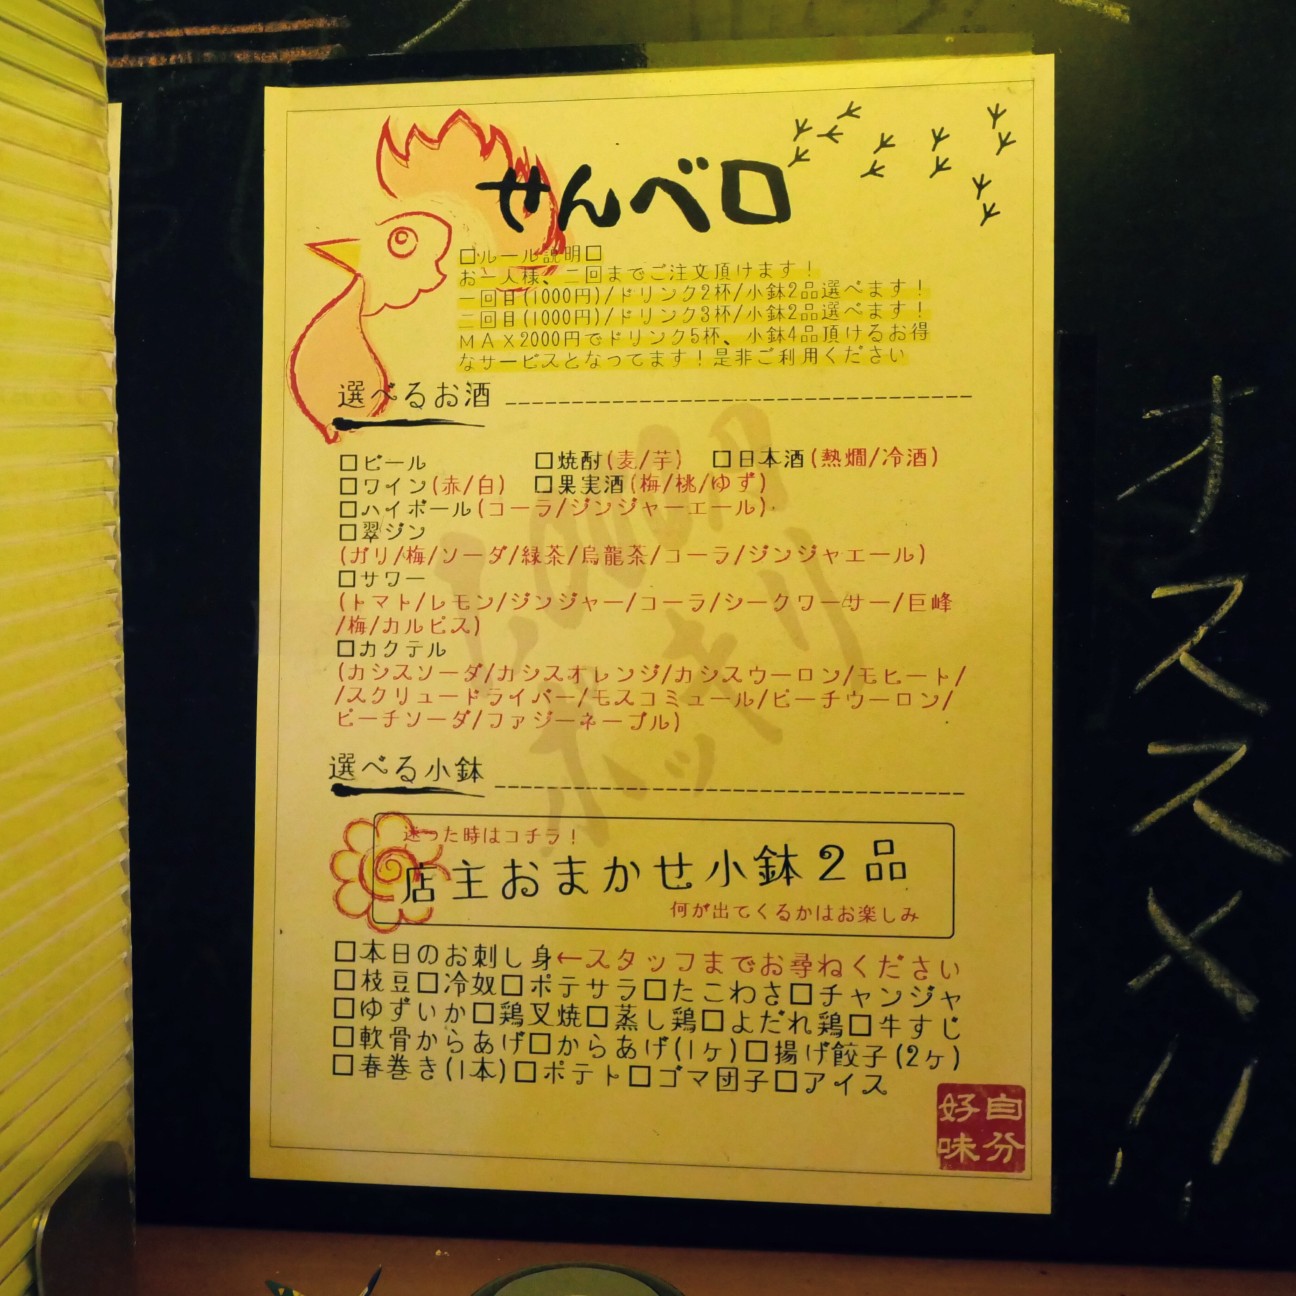 せんべロ
□ルール説明□
お一人様、二回までご注文頂けます！
一回目(1000円)/ドリンク2杯/小鉢2品選べます！
二回目(1000円)/ドリンク3杯/小鉢2品選べます！
MAX2000円でドリンク5杯、小鉢4品頂けるお得
なサービスとなってます！是非ご利用ください
選べるお酒
□ビール □焼酎(麦/芋) □日本酒(熱燗/冷酒)
□ワイン(赤/白) □果実酒(梅/桃/ゆず)
□ハイボール(コーラ/ジンジャーエール)
□翠ジン
(ガリ/梅/ソーダ/緑茶/烏龍茶/コーラ/ジンジャエール)
□サワー
(トマト/レモン/ジンジャー/コーラ/シークワーサー/巨峰
/梅/カルピス)
□カクテル
(カシスソーダ/カシスオレンジ/カシスウーロン/モヒート/
/スクリュードライバー/モスコミュール/ピーチウーロン/
ピーチソーダ/ファジーネーブル)
選べる小鉢
迷った時はコチラ！
店主おまかせ小鉢2品
何が出てくるかはお楽しみ
□本日のお刺し身←スタッフまでお尋ねください
□枝豆□冷奴□ポテサラ□たこわさ□チャンジャ
□ゆずいか□鶏叉焼□蒸し鶏□よだれ鶏□牛すじ
□軟骨からあげ□からあげ(1ヶ)□揚げ餃子(2ヶ)
□春巻き(1本)□ポテト□ゴマ団子□アイス
自分
好味
オススメ!!